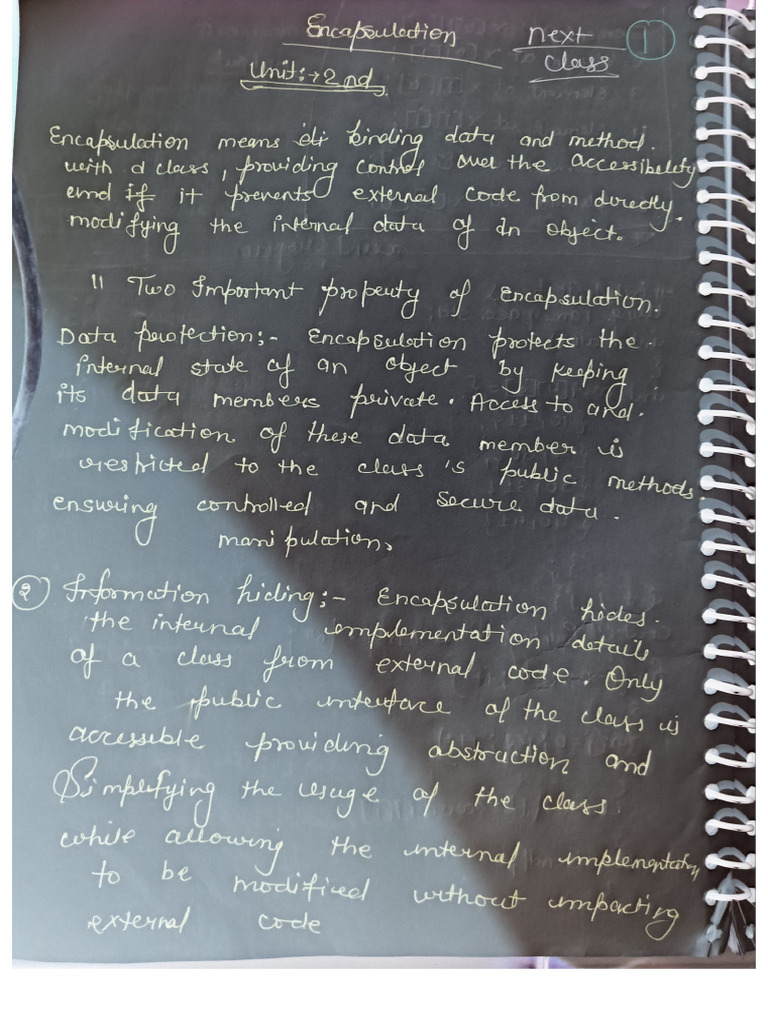 Encapsulation next 1
Unit:→2nd class
Encapsulation means binding data and method.
with a class, providing control over the accessibility
and if it prevents external code from directly.
modifying the internal data of an object.
" Two Important property of Encapsulation.
Data protection:- Encapsulation protects the.
internal state of an object by keeping
its data members private. Access to and.
modification of these data member is
restricted to the class's public methods.
ensuring controlled and secure data.
manipulation.
2 Information hiding:- Encapsulation hides.
the internal implementation details
of a class from external code. Only
the public interface of the class is
accessible providing abstraction and
Simplifying the usage of the class.
while allowing the internal implementation
to be modified without impacting
external code